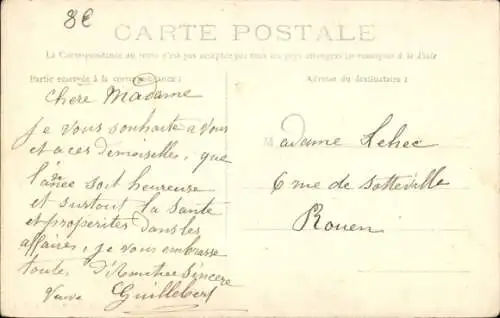 8€
CARTE POSTALE
La Correspondance au verso n'est pas acceptée par tous les pays étrangers (se renseigner à la Poste)
Partie envoyée à la correspondance:
Adresse du destinataire:
Chere Madame
je vous souhaite a vous
et a ces demoiselles, que
l'anée soit heureuse
et surtout la santé
et properites dans les
affaires, je vous embrasse
toute, d'Amitiee Sincere
Veuve Guillebert
Madame Lehec
6 rue de Sotteville
Rouen